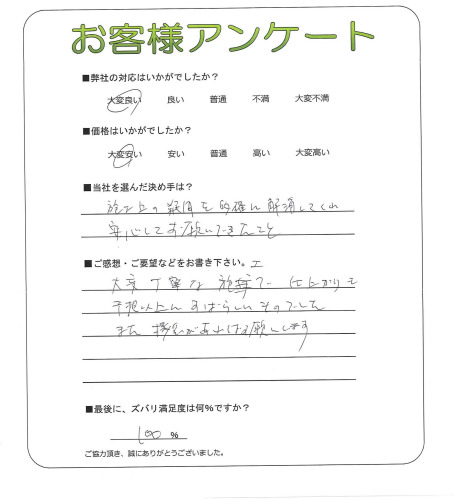 お客様アンケート
■弊社の対応はいかがでしたか？
大変良い 良い 普通 不満 大変不満
■価格はいかがでしたか？
大変安い 安い 普通 高い 大変高い
■当社を選んだ決め手は？
施工上の疑問を的確に解消してくれ
安心してお願いできたこと
■ご感想・ご要望などをお書き下さい。
大変丁寧な施工で 仕上がりも
予想以上にすばらしいものでした
また機会があればお願いします
■最後に、ズバリ満足度は何％ですか？
100 %
ご協力頂き、誠にありがとうございました。